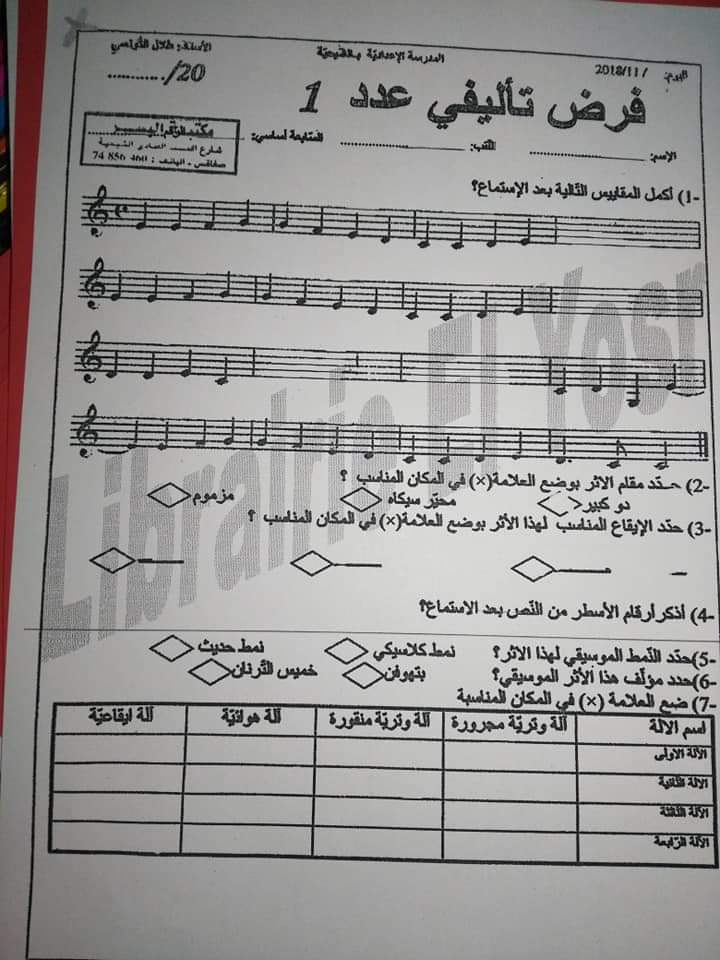 المدرسة الإعدادية بالشيحية
اليوم: / 2018/11
الأستاذ: طلال
فرض تأليفي عدد 1
........../20
الإسم: .................... اللقب: .................... السابعة أساسي: ....................
مكتب الرقم اليسر
شارع
صفاقس - الهاتف : 460 856 74
1-) أكمل المقاييس التّالية بعد الإستماع؟
2-) حدّد مقام الاثر بوضع العلامة(×) في المكان المناسب ؟
دو كبير محيّر سيكاه مزموم
3-) حدّد الإيقاع المناسب لهذا الأثر بوضع العلامة(×) في المكان المناسب ؟
4-) أذكر أرقام الأسطر من النّص بعد الاستماع؟
5-)حدّد النّمط الموسيقي لهذا الاثر؟ نمط كلاسيكي نمط حديث
6-)حدد مؤلّف هذا الأثر الموسيقي؟ بتهوفن خميس التّرنان
7-) ضع العلامة (×) في المكان المناسبة
اسم الالة آلة وتريّة مجرورة آلة وتريّة منقورة آلة هوائيّة آلة ايقاعيّة
الآلة الاولى
الآلة الثّانية
الآلة الثّالثة
الآلة الرّابعة
Librairie El Yosr